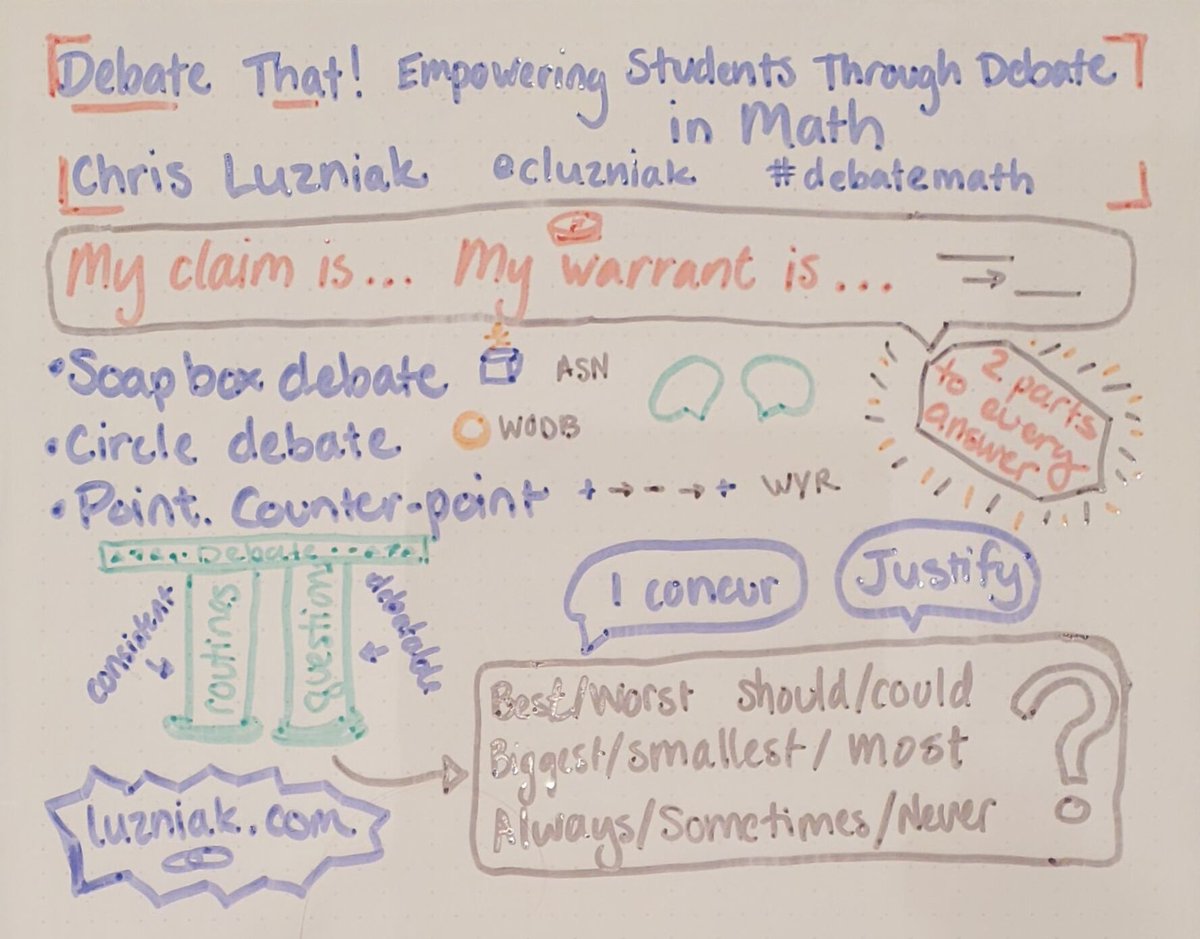 Debate That! Empowering Students Through Debate
in Math
Chris Luzniak @cluzniak #debatemath
My claim is... My warrant is...
2 parts
to every
answer
• Soapbox debate ASN
• Circle debate WODB
• Point. Counter-point + → - → + WYR
Debate
consistent
routines
question
debatable
I concur
Justify
Best/Worst should/could
Biggest/smallest/most
Always/Sometimes/Never
?
luzniak.com